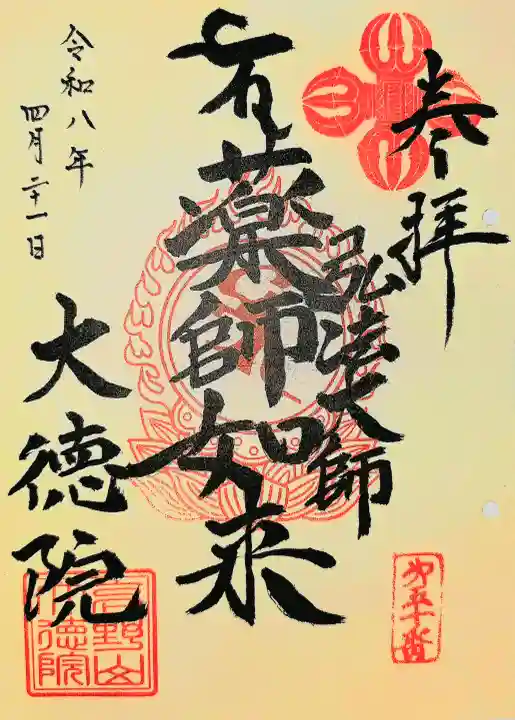 奉拝
弘法大師
薬師如来
令和八年
四月二十一日
大徳院
高野山
大徳院